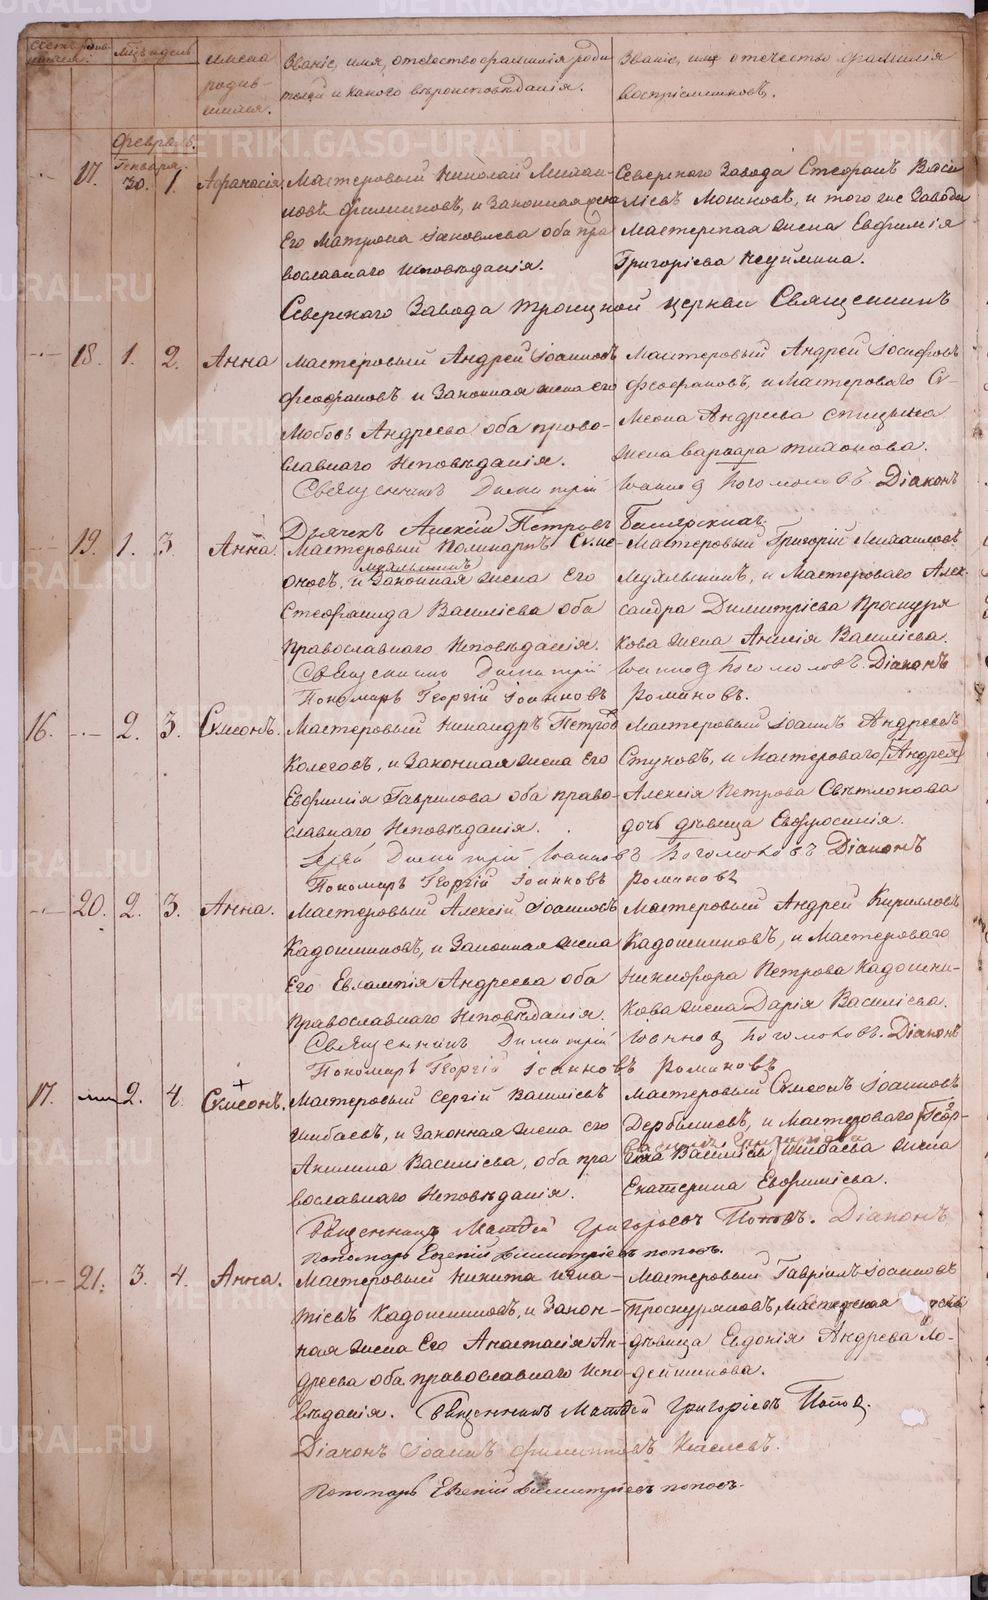 Счетъ родившихся.
Мцъ и день
имена родившихся.
Званіе, имя, отечество и фамилія родителей и какого вѣроисповѣданія.
Званіе, имя отечество и фамилія воспріемниковъ.
Февраль.
Генваря
17. 30. 1. Афанасія
Мастеровый Николай Михайловъ Филиповъ, и Законная жена
Его Матрона Іаковлева оба православнаго Исповѣданія.
Северскаго Завода Стефанъ Василіевъ Мошковъ, и того же Завода
Мастерская жена Евфимія
Григоріева Неуймина.
Северскаго Завода Троицкой церкви Священникъ
18. 1. 2. Анна
Мастеровый Андрей Іоанновъ
Феофановъ и Законная жена его
Любовь Андреева оба православнаго Исповѣданія.
Мастеровый Андрей Іосифовъ
Феофановъ, и Мастероваго Симеона Андреева Спицына
жена Варвара Тихонова.
Священникъ Димитрій Іоанновъ Богомоловъ. Діаконъ
Дьячекъ Алексій Петровъ
19. 1. 3. Анна.
Мастеровый Поликарпъ Симеоновъ, и Законная жена Его
Мухлынинъ
Стефанида Василіева оба
Православнаго Исповѣданія.
Мастеровый Григорій Михайловъ
Мухлынинъ, и Мастероваго Александра Димитріева Проскурякова жена Анисія Василіева.
Священникъ Димитрій Іоанновъ Богомоловъ. Діаконъ
Пономарь Георгій Іоанновъ Романовъ.
16. 2. 3. Симеонъ.
Мастеровый Никандръ Петровъ
Колеговъ, и Законная жена Его
Евфимія Гаврилова оба православнаго Исповѣданія.
Мастеровый Іоаннъ Андреевъ
Стуковъ, и Мастероваго (Андрея)
Алексія Петрова Свѣтлокова
дочь дѣвица Евфросинія.
Іерей Димитрій Іоанновъ Богомоловъ Діаконъ
Пономарь Георгій Іоанновъ Романовъ
20. 2. 3. Анна.
Мастеровый Алексій Іоанновъ
Кадошниковъ, и Законная жена
Его Евлампія Андреева оба
Православнаго Исповѣданія.
Мастеровый Андрей Кирилловъ
Кадошниковъ, и Мастероваго
Никифора Петрова Кадошникова жена Дарія Василіева.
Священникъ Димитрій Іоанновъ Богомоловъ. Діаконъ
Пономарь Георгій Іоанновъ Романовъ
17. 2. 4. Симеонъ.
Мастеровый Сергій Василіевъ
Шибаевъ, и Законная жена его
Акилина Василіева, оба православнаго Исповѣданія.
Мастеровый Симеонъ Іоанновъ
Дербышевъ, и Мастероваго (Георгія Василіева) Шибаева жена
Екатерина Евфиміева.
Священникъ Матѳей Григорьевъ Поповъ. Діаконъ
Пономарь Евгеній Димитріевъ Поповъ.
21. 3. 4. Анна.
Мастеровый Никита Игнатіевъ Кадошниковъ, и Законная жена Его Анастасія Андреева оба православнаго Исповѣданія.
Мастеровый Гавріилъ Іоанновъ
Проскуряковъ, Мастерская
дѣвица Евдокія Андреева
Священникъ Матѳей Григоріевъ Поповъ.
Діаконъ Іоаннъ Филипповъ Киселевъ.
Пономарь Евгеній Димитріевъ Поповъ.
METRIKI.GASO-URAL.RU